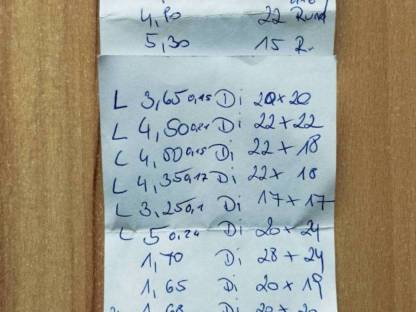 4,80 22 Rund
5,30 15 R.
L 3,65 0,15 Di 20x20
L 4,50 0,21 Di 22x22
L 4,00 0,15 Di 22x18
L 4,35 0,17 Di 22x18
L 3,25 0,1 Di 17x17
L 5 0,24 Di 20x24
1,70 Di 28x24
1,65 Di 20x19
1,68 Di 20x20